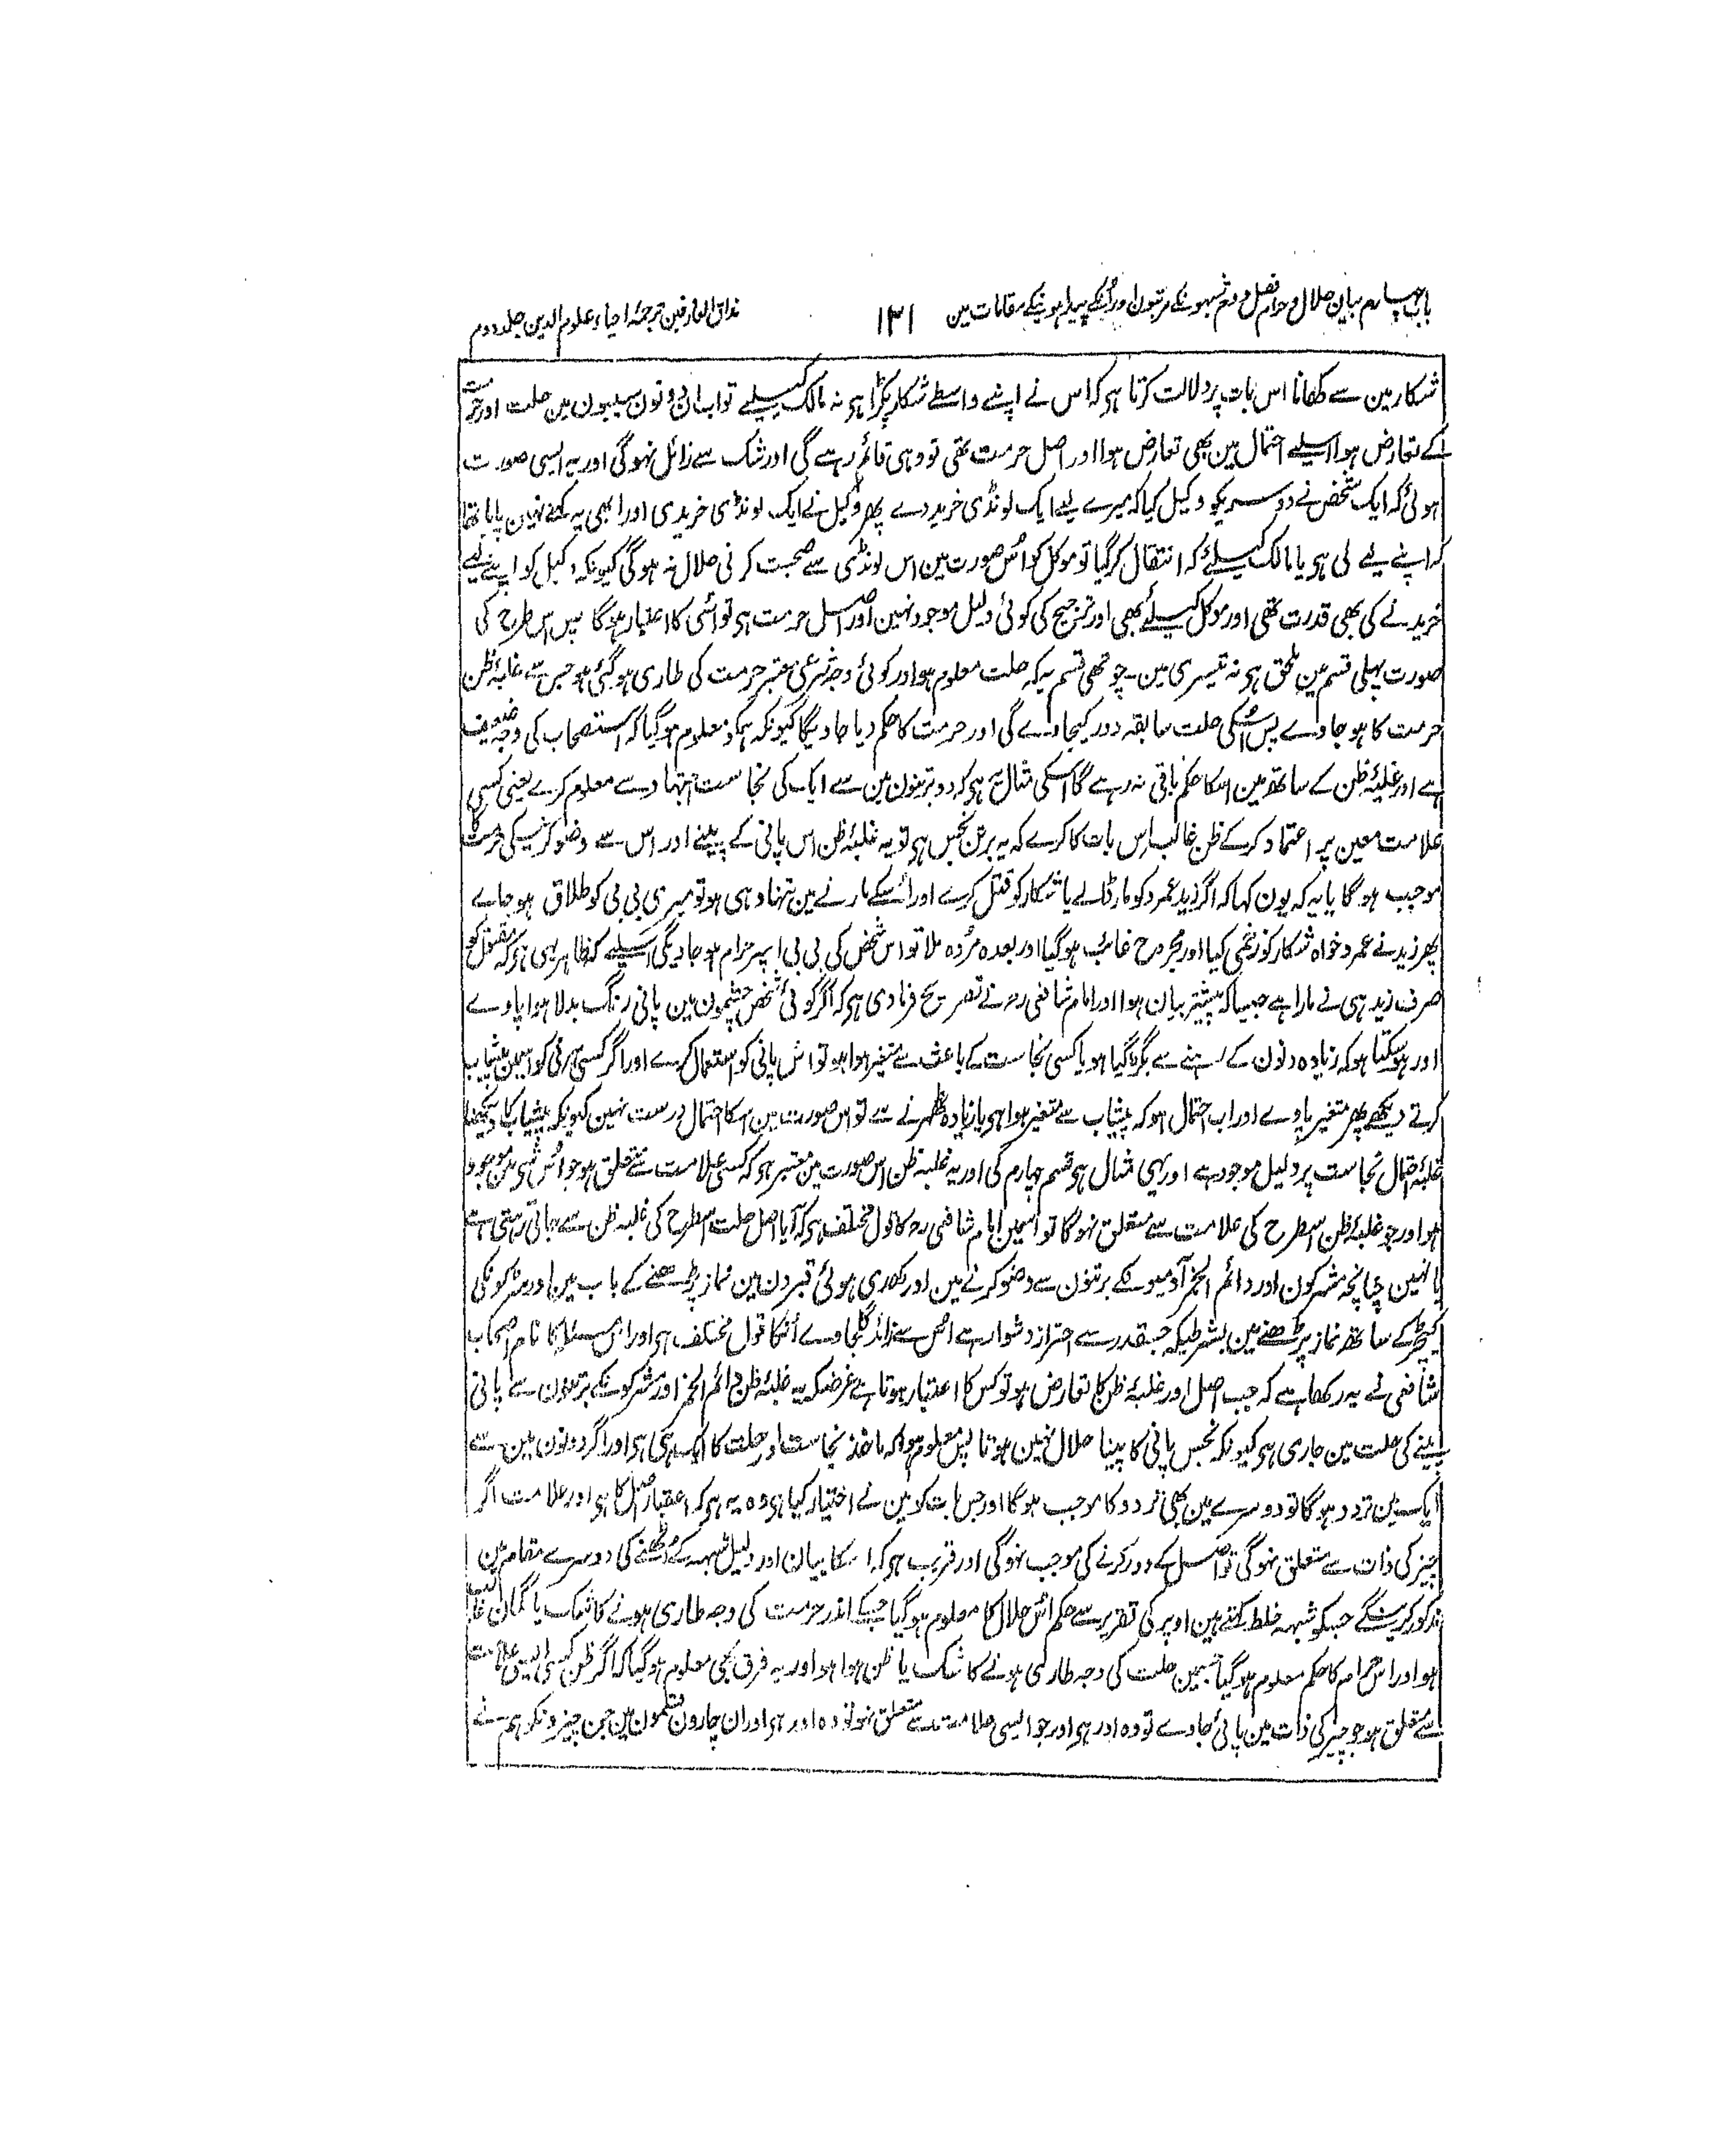 باب چہارم بیان حلال و حرام فصل دوم شبہونکے مرتبون اور انکے پیدا ہونیکے مقامات مین
۱۳۱
مذاق العارفین ترجمۂ احیاء علوم الدین جلد دوم
شکار مین سے کھانا اس بات پر دلالت کرتا ہی کہ اس نے اپنے واسطے شکار پکڑا ہی نہ مالک کیلیے تو اب ان دونون سببون مین حلت اور حرمت
کے تعارض ہوا اسلیے احتمال مین بھی تعارض ہوا اور اصل حرمت تھی تو وہی قائم رہے گی اور شک سے زائل نہوگی اور یہ ایسی صورت
ہوئی کہ ایک شخص نے دوسریکو وکیل کیا کہ میرے لیے ایک لونڈی خرید دے پھر وکیل نے ایک لونڈی خریدی اور ابھی یہ کہنے نہین پایا تھا
کہ اپنے لیے لی ہی یا مالک کیلئے کہ انتقال کر گیا تو موکل کو اُس صورت مین اس لونڈی سے صحبت کرنی حلال نہ ہوگی کیونکہ وکیل کو اپنے لیے
خریدنے کی بھی قدرت تھی اور موکل کیلئے بھی اور ترجیح کی کوئی دلیل موجود نہین اور اصل حرمت ہی تو اُسی کا اعتبار ہوگا پس اس طرح کی
صورت پہلی قسم مین ملحق ہی نہ تیسری مین۔ چوتھی قسم یہ کہ حلت معلوم ہو اور کوئی وجہ شرعی معتبر حرمت کی طاری ہوگئی ہو جس سے غلبۂ ظن
حرمت کا ہو جاوے پس اُسکی حلت سابقہ دور کیجاوے گی اور حرمت کا حکم دیا جاویگا کیونکہ ہمکو معلوم ہوگیا کہ استصحاب کی وجہ ضعیف
ہے اور غلبۂ ظن کے ساتھ مین اسکا حکم باقی نہ رہے گا اسکی مثال یہ ہی کہ دو برتنون مین سے ایک کی نجاست اجتہاد سے معلوم کرے یعنی کسی
علامت معین پر اعتماد کرکے ظن غالب اس بات کا کرے کہ یہ برتن نجس ہی تو یہ غلبۂ ظن اس پانی کے پینے اور اس سے وضو کرنیکی حرمت کا
موجب ہوگا یا یہ کہ یون کہا کہ اگر زید عمرو کو مار ڈالے یا شکار کو قتل کرے اور اُسکے مارنے مین تنہا وہی ہو تو میری بی بی کو طلاق ہو جاے
پھر زید نے عمرو خواہ شکار کو زخمی کیا اور مجروح غائب ہوگیا اور بعدہ مُردہ ملا تو اس شخص کی بی بی اسپر حرام ہو جاویگی اسلیے کہ ظاہر یہی ہی کہ مقتول کو
صرف زید ہی نے مارا ہے جیسا کہ پیشتر بیان ہوا اور امام شافعی رہ نے تصریح فرما دی ہی کہ اگر کوئی شخص چشمون مین پانی رنگ بدلا ہوا پاوے
اور ہو سکتا ہو کہ زیادہ دنون کے رہنے سے بگڑ گیا ہو یا کسی نجاست کے باعث سے متغیر ہوا ہو تو اس پانی کو استعمال کرے اور اگر کسی ہرنی کو اسمین پیشاب
کرتے دیکھے پھر متغیر پاوے اور اب احتمال ہو کہ پیشاب سے متغیر ہوا ہی یا زیادہ ٹھہرنے سے تو اس صورت مین اسکا احتمال درست نہین کیونکہ پیشاب کا دیکھنا
غلبۂ احتمال نجاست پر دلیل موجود ہے اور یہی مثال ہی قسم چہارم کی اور یہ غلبۂ ظن اس صورت مین معتبر ہو کہ کسی علامت سے متعلق ہو جو اُس شی مین موجود
ہو اور جو غلبۂ ظن اسطرح کی علامت سے متعلق نہوگا تو اسمین امام شافعی رہ کا قول مختلف ہی کہ آیا اصل حلت اسطرح کی غلبہ ظن سے جاتی رہتی ہے
یا نہین چنانچہ مشرکون اور دائم الخمر آدمیونکے برتنون سے وضو کرنے مین اور کھدی ہوئی قبرون مین نماز پڑھنے کے باب مین اور سڑکونکی
کیچڑ کے ساتھ نماز پڑھنے مین بشرطیکہ جسقدر سے احتراز دشوار ہے اس سے زائد لگجاوے اُنکا قول مختلف ہی اور اس مسئلہ کا نام اصحاب
شافعی نے یہ رکھا ہے کہ جب اصل اور غلبۂ ظن کا تعارض ہو تو کس کا اعتبار ہوتا ہے غرضکہ یہ غلبۂ ظن دائم الخمر اور مشرکونکے برتنون سے پانی
پینے کی حلت مین جاری ہی کیونکہ نجس پانی کا پینا حلال نہین ہوتا پس معلوم ہوا کہ ماخذ نجاست اور حلت کا ایک ہی ہی اور اگر دونون مین سے
ایک مین تردد ہوگا تو دوسرے مین بھی تردد کا موجب ہوگا اور جس بات کو مین نے اختیار کیا ہی وہ یہ ہی کہ اعتبار اصل کا ہی اور علامت اگر
چیز کی ذات سے متعلق نہوگی تو اصل کے دور کرنے کی موجب نہوگی اور قریب ہی کہ اسکا بیان اور دلیل شبہہ کے اُٹھنے کی دوسرے مقام مین
مذکور کرینگے جسکو شبہہ خلط کہتے ہین اوپر کی تقریر سے حکم اس حلال کا معلوم ہوگیا جسکے اندر حرمت کی وجہ طاری ہونے کا شک یا گمان غالب
ہو اور اس حرام کا حکم معلوم ہوگیا جسمین حلت کی وجہ طاری ہونے کا شک یا ظن ہوا ہو اور یہ فرق بھی معلوم ہوگیا کہ اگر ظن کسی ایسی علامت
سے متعلق ہو جو چیز کی ذات مین پائی جاوے تو وہ اور ہی اور جو ایسی علامت سے متعلق نہو تو وہ اور ہی اور ان چارون قسمون مین جن چیزونکو ہم نے